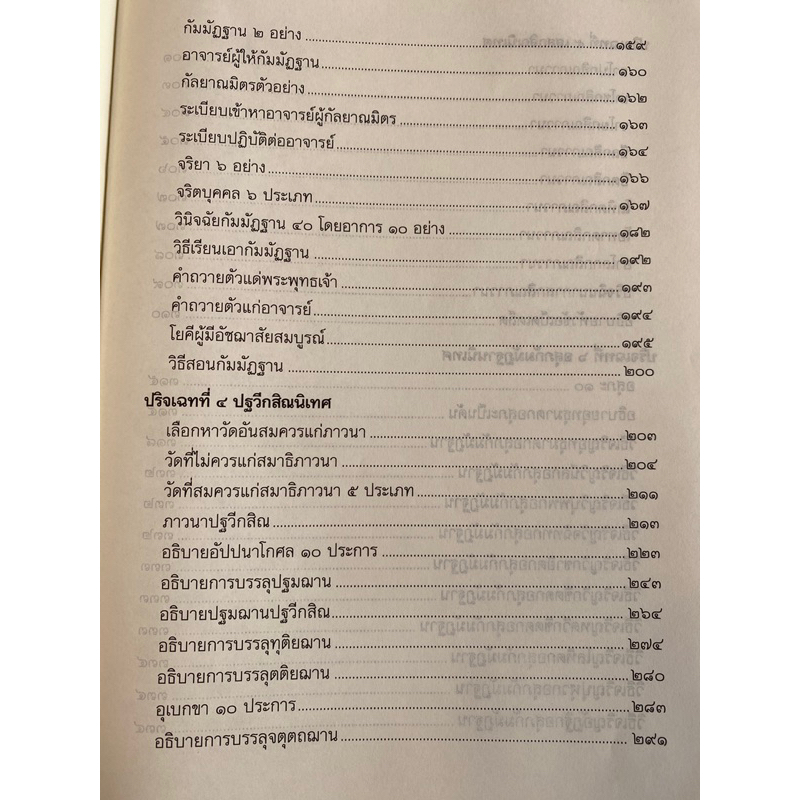 กัมมัฏฐาน ๒ อย่าง ๑๕๙
อาจารย์ผู้ให้กัมมัฏฐาน ๑๖๐
กัลยาณมิตรตัวอย่าง ๑๖๒
ระเบียบเข้าหาอาจารย์ผู้กัลยาณมิตร ๑๖๓
ระเบียบปฏิบัติต่ออาจารย์ ๑๖๔
จริยา ๖ อย่าง ๑๖๖
จริตบุคคล ๖ ประเภท ๑๖๗
วินิจฉัยกัมมัฏฐาน ๔๐ โดยอาการ ๑๐ อย่าง ๑๘๒
วิธีเรียนเอากัมมัฏฐาน ๑๙๒
คำถวายตัวแด่พระพุทธเจ้า ๑๙๓
คำถวายตัวแก่อาจารย์ ๑๙๔
โยคีผู้มีอัชฌาสัยสมบูรณ์ ๑๙๕
วิธีสอนกัมมัฏฐาน ๒๐๐
ปริจเฉทที่ ๔ ปฐวีกสิณนิเทศ
เลือกหาวัดอันสมควรแก่ภาวนา ๒๐๓
วัดที่ไม่ควรแก่สมาธิภาวนา ๒๐๔
วัดที่สมควรแก่สมาธิภาวนา ๕ ประเภท ๒๑๑
ภาวนาปฐวีกสิณ ๒๑๓
อธิบายอัปปนาโกศล ๑๐ ประการ ๒๒๓
อธิบายการบรรลุปฐมฌาน ๒๔๓
อธิบายปฐมฌานปฐวีกสิณ ๒๖๔
อธิบายการบรรลุทุติยฌาน ๒๗๔
อธิบายการบรรลุตติยฌาน ๒๘๐
อุเบกขา ๑๐ ประการ ๒๘๓
อธิบายการบรรลุจตุตถฌาน ๒๙๑